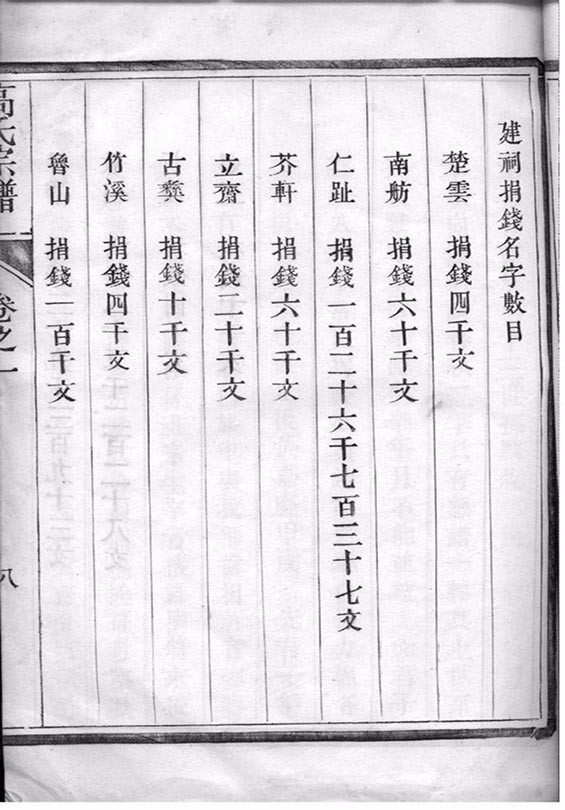 建祠捐錢名字數目
楚雲 捐錢四千文
南舫 捐錢六十千文
仁趾 捐錢一百二十六千七百三十七文
芥軒 捐錢六十千文
立齋 捐錢二十千文
古彝 捐錢十千文
竹溪 捐錢四千文
魯山 捐錢一百千文
高氏宗譜 卷之一 八